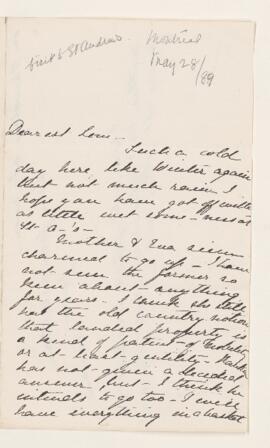 Visit to St Andrews
Montreal
May 28/
89
Dearest Lou -
Such a cold
day here like Winter again
but not much rain. I
hope you have got off with
as little wet some -
St A's -
Mother & Eva seem
charmed to go up - I have
not seen the former so
keen about anything
for years - I think she still
has the old country notion
that landed property is
a kind of patent of Nobility
or at least gentility. Hasty
has not given a decided
answer, but I think he
intends to go too - I will
have everything in a basket